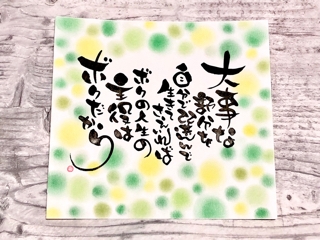 大事な
自分で選んで
生きてさえいれば
ボクの人生の
主役は
ボクだから